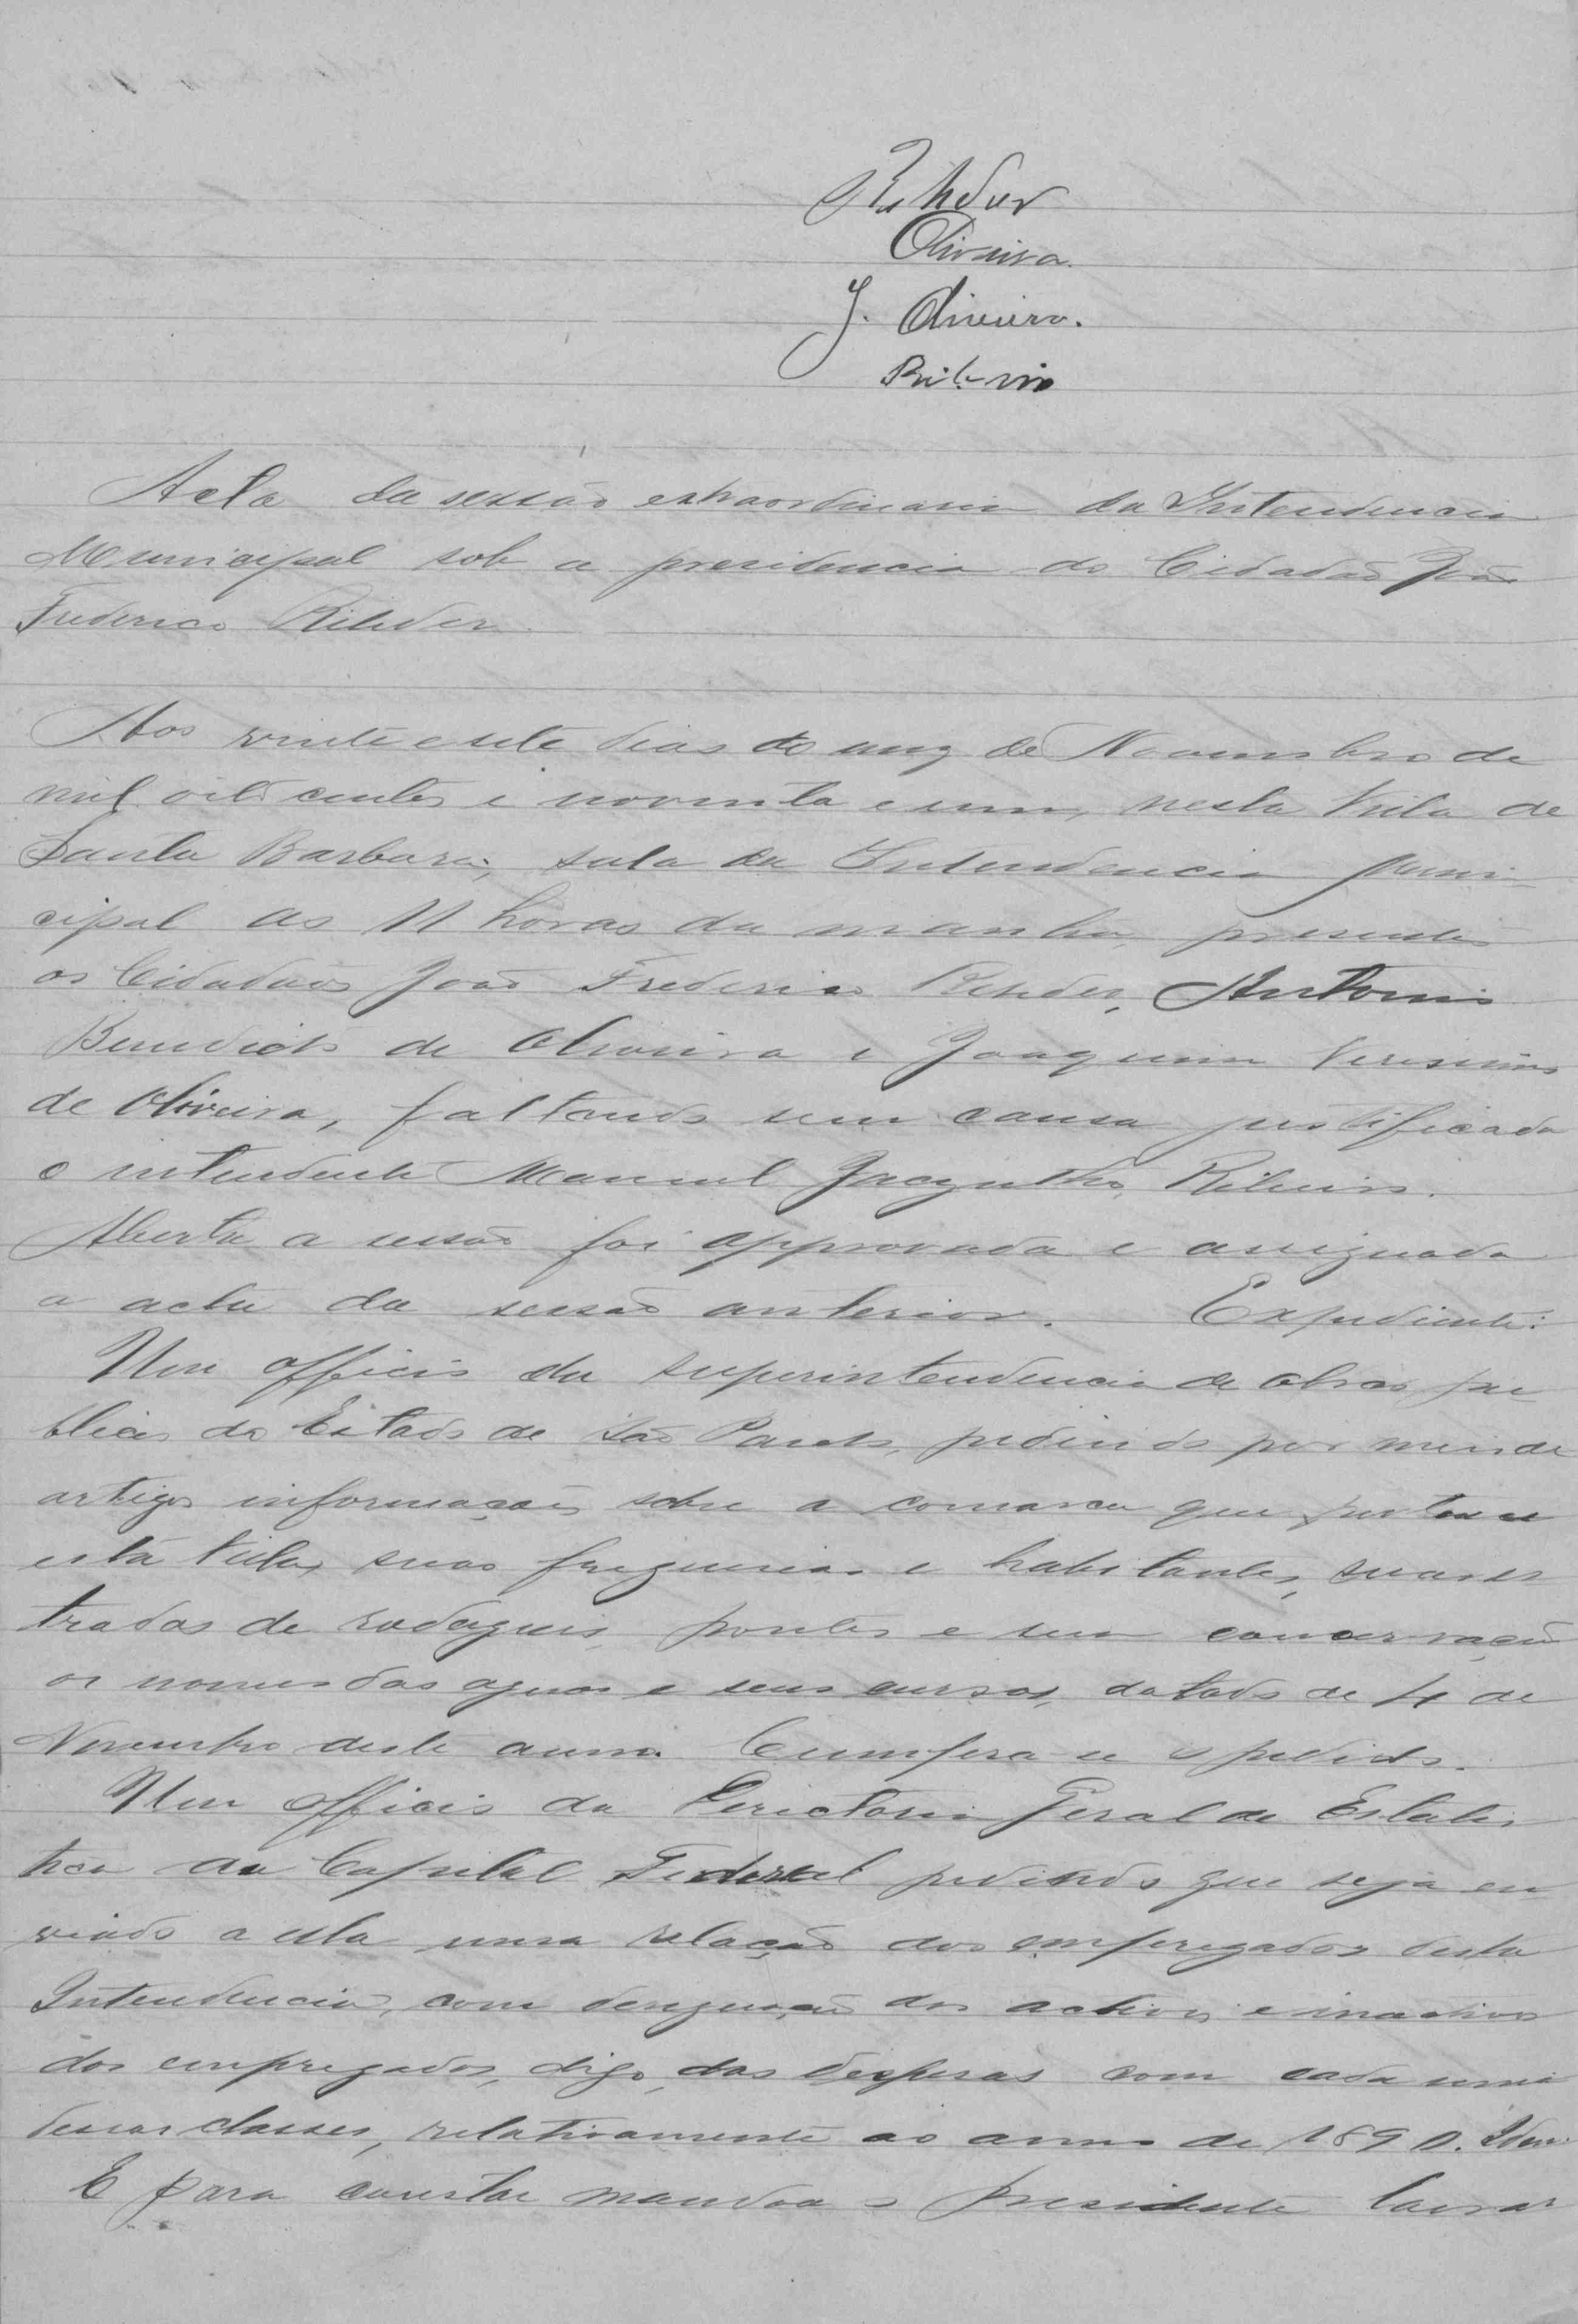 Rehder
Oliveira
J. Oliveira.
Ribeiro
Acta da sessão extraordinaria da Intendencia
Municipal sob a presidencia do Cidadão João
Frederico Rehder.
Aos vinte e sete dias do mez de Novembro de
mil oito centos e noventa e um, nesta Villa de
Santa Barbara, sala da Intendencia Muni-
cipal as 11 horas da manhã, presentes
os Cidadãos João Frederico Rehder, Antonio
Benedicto de Oliveira e Joaquim Verissimo
de Oliveira, faltando sem causa justificada
o intendente Manuel Jacyntho Ribeiro.
Aberta a sessão foi approvada e assignada
a acta da sessão anterior. Expediente:
Um officio da superintendencia de obras pu-
blicas do Estado de São Paulo, pedindo por meio de
artigos informações sobre a comarca que pertence
esta Villa, suas freguesias e habitantes, suas es
tradas de rodagens, pontes e sua conservação
os nomes das aguas e seus cursos, datado de 4 de
Novembro deste anno. Cumpra-se o pedido.
Um officio da Directoria Geral de Estatis
tica da Capital Federal pedindo que seja en
viado a ella uma relação dos empregados desta
Intendencia, com designação dos activos e inactivos
dos empregados, digo, das despesas com cada uma
dessas classes, relativamente ao anno de 1890. Idem.
E para constar mandou o presidente lavrar